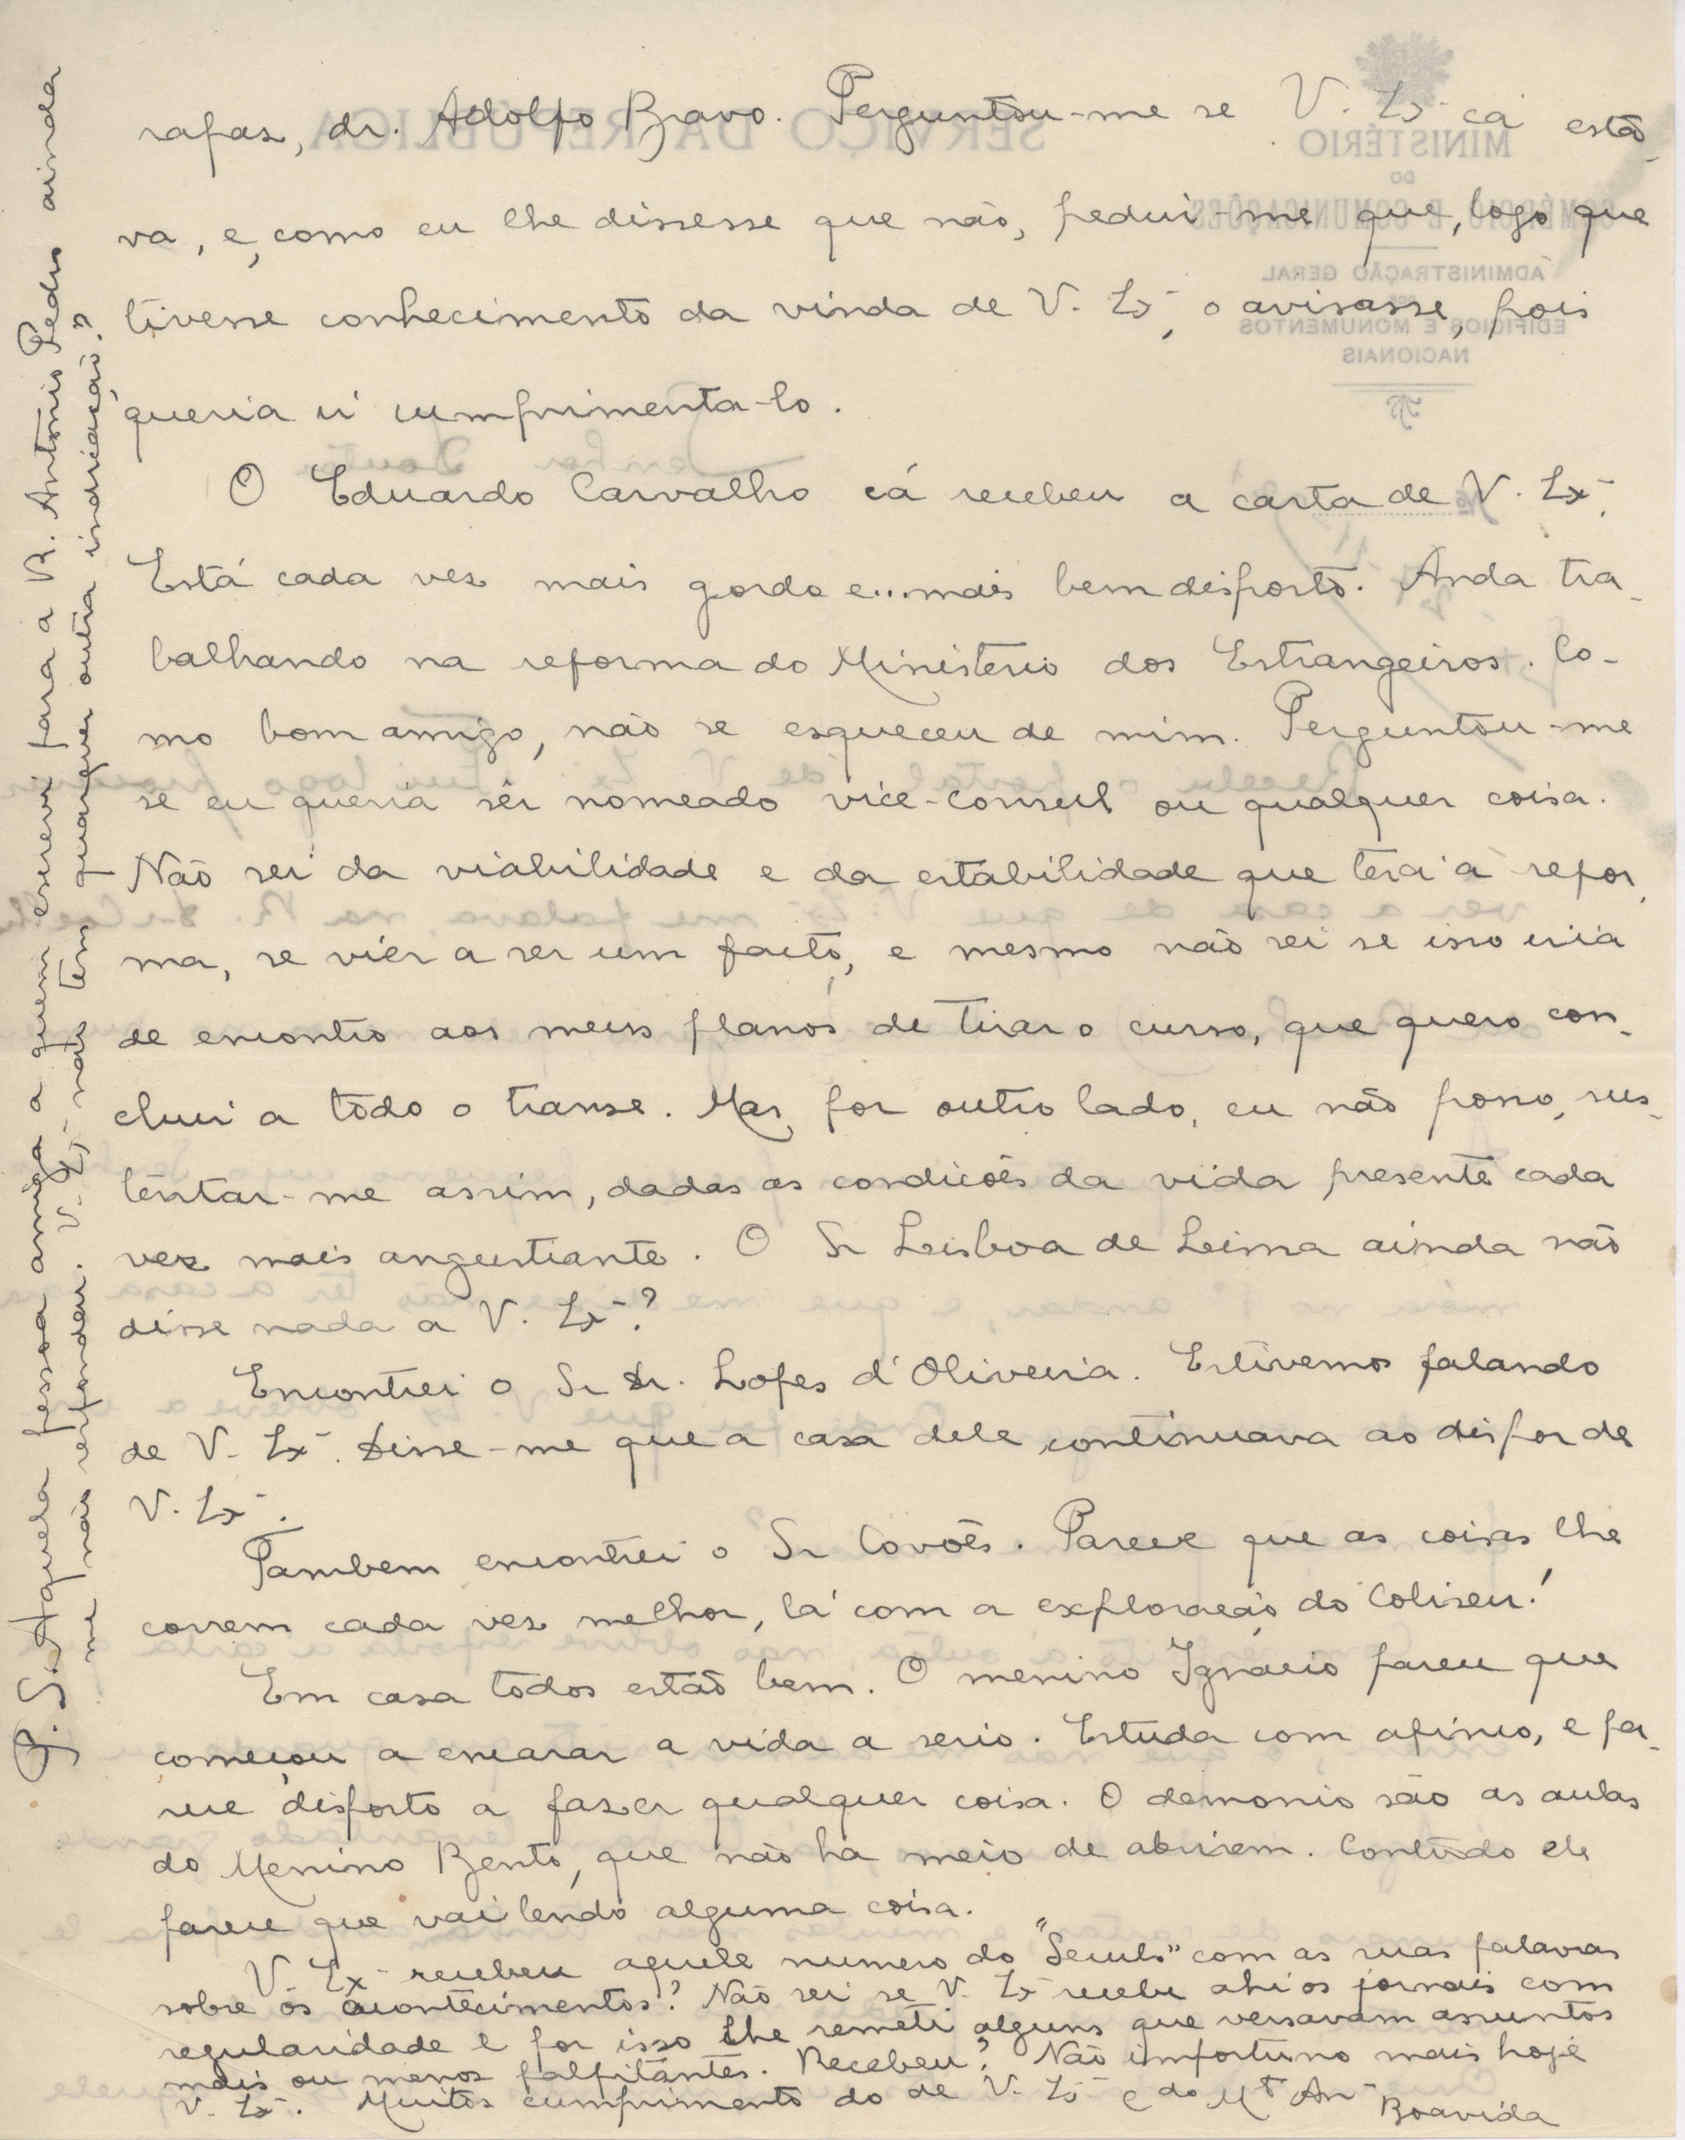 rapaz, dr. Adolfo Bravo. Perguntou-me se V. Exª cá está-
va, e, como eu lhe dissesse que não, pediu-me que, logo que
tivesse conhecimento da vinda de V. Exª, o avisasse, pois
queria ir cumprimenta-lo.
O Eduardo Carvalho cá recebeu a carta de V. Exª.
Está cada vez mais gordo e... mais bem disposto. Anda tra-
balhando na reforma do Ministerio dos Estrangeiros. Co-
mo bom amigo, não se esqueceu de mim. Perguntou-me
se eu queria sêr nomeado vice-consul ou qualquer coisa.
Não sei da viabilidade e da estabilidade que terá a refor-
ma, se viér a ser um facto, e mesmo não sei se isso iria
de encontro aos meus planos de tirar o curso, que quero con-
cluir a todo o transe. Mas, por outro lado, eu não posso, sus-
tentar-me assim, dadas as condições da vida presente cada
vez mais angustiante. O Sr Lisboa de Lima ainda não
disse nada a V. Exª?
Encontrei o Sr Dr. Lopes d'Oliveira. Estivemos falando
de V. Exª. Disse-me que a casa dele continuava ao dispor de
V. Exª.
Tambem encontrei o Sr Covões. Parece que as coisas lhe
correm cada vez melhor, lá com a exploração do Coliseu!
Em casa todos estão bem. O menino Ignacio parece que
começou a encarar a vida a serio. Estuda com afinco, e pa-
rece disposto a fazer qualquer coisa. O demonio são as aulas
do Menino Bento, que não ha meio de abrirem. Contudo ele
parece que vai lendo alguma coisa.
V. Exª recebeu aquele numero do "Seculo" com as suas palavras
sobre os acontecimentos? Não sei se V. Exª recebe ahi os jornais com
regularidade e por isso lhe remeti alguns que versavam assuntos
mais ou menos palpitantes. Recebeu? Não importuno mais hoje
V. Exª. Muitos cumprimentos do de V. Exª e do Mᵗ Anª
Boavida
P. S. Aquela pessoa amiga a quem escrevi para a R. Antonio Pedro ainda
me não respondeu. V. Exª não tem qualquer outra indicação?
SERVIÇO DA REPÚBLICA
MINISTÉRIO
DO
COMÉRCIO E COMUNICAÇÕES
ADMINISTRAÇÃO GERAL
EDIFICIOS E MONUMENTOS
NACIONAIS